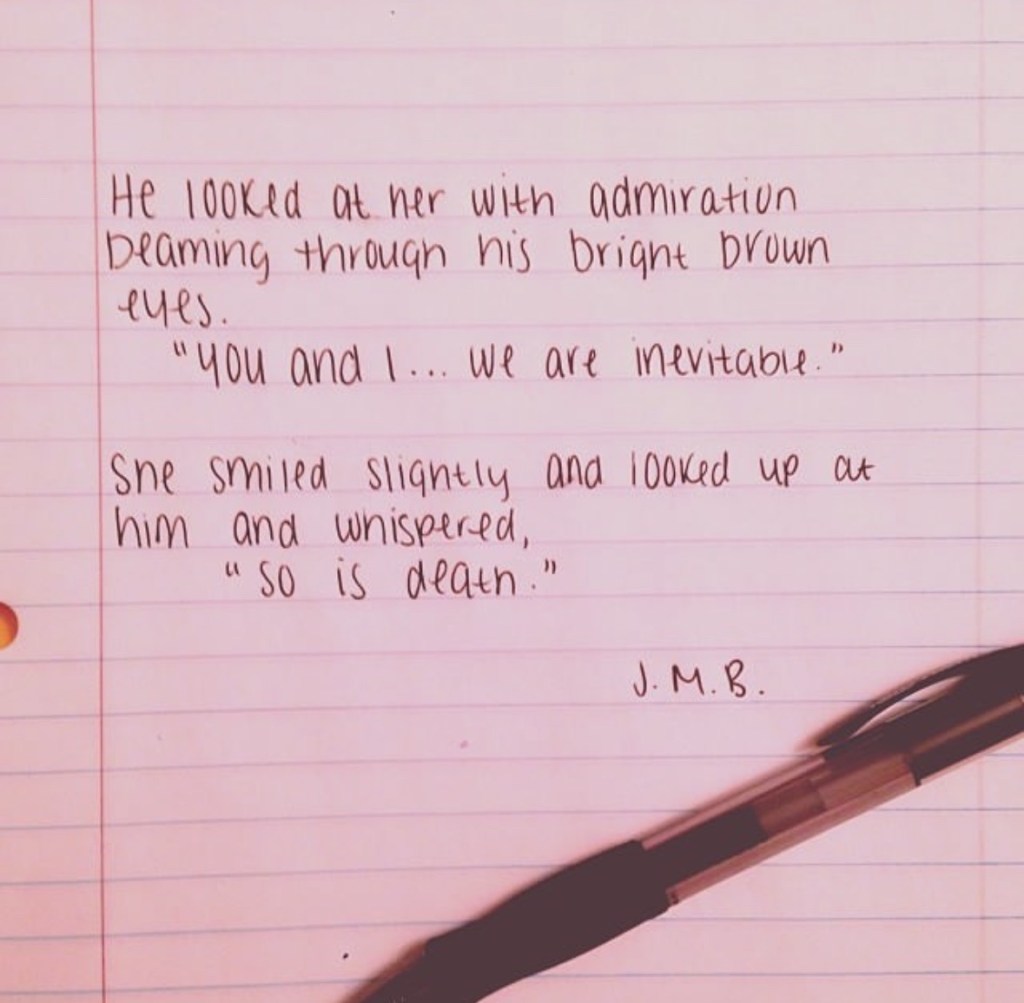 He looked at her with admiration
beaming through his bright brown
eyes.
"you and I... we are inevitable."
She smiled slightly and looked up at
him and whispered,
"so is death."
J.M.B.